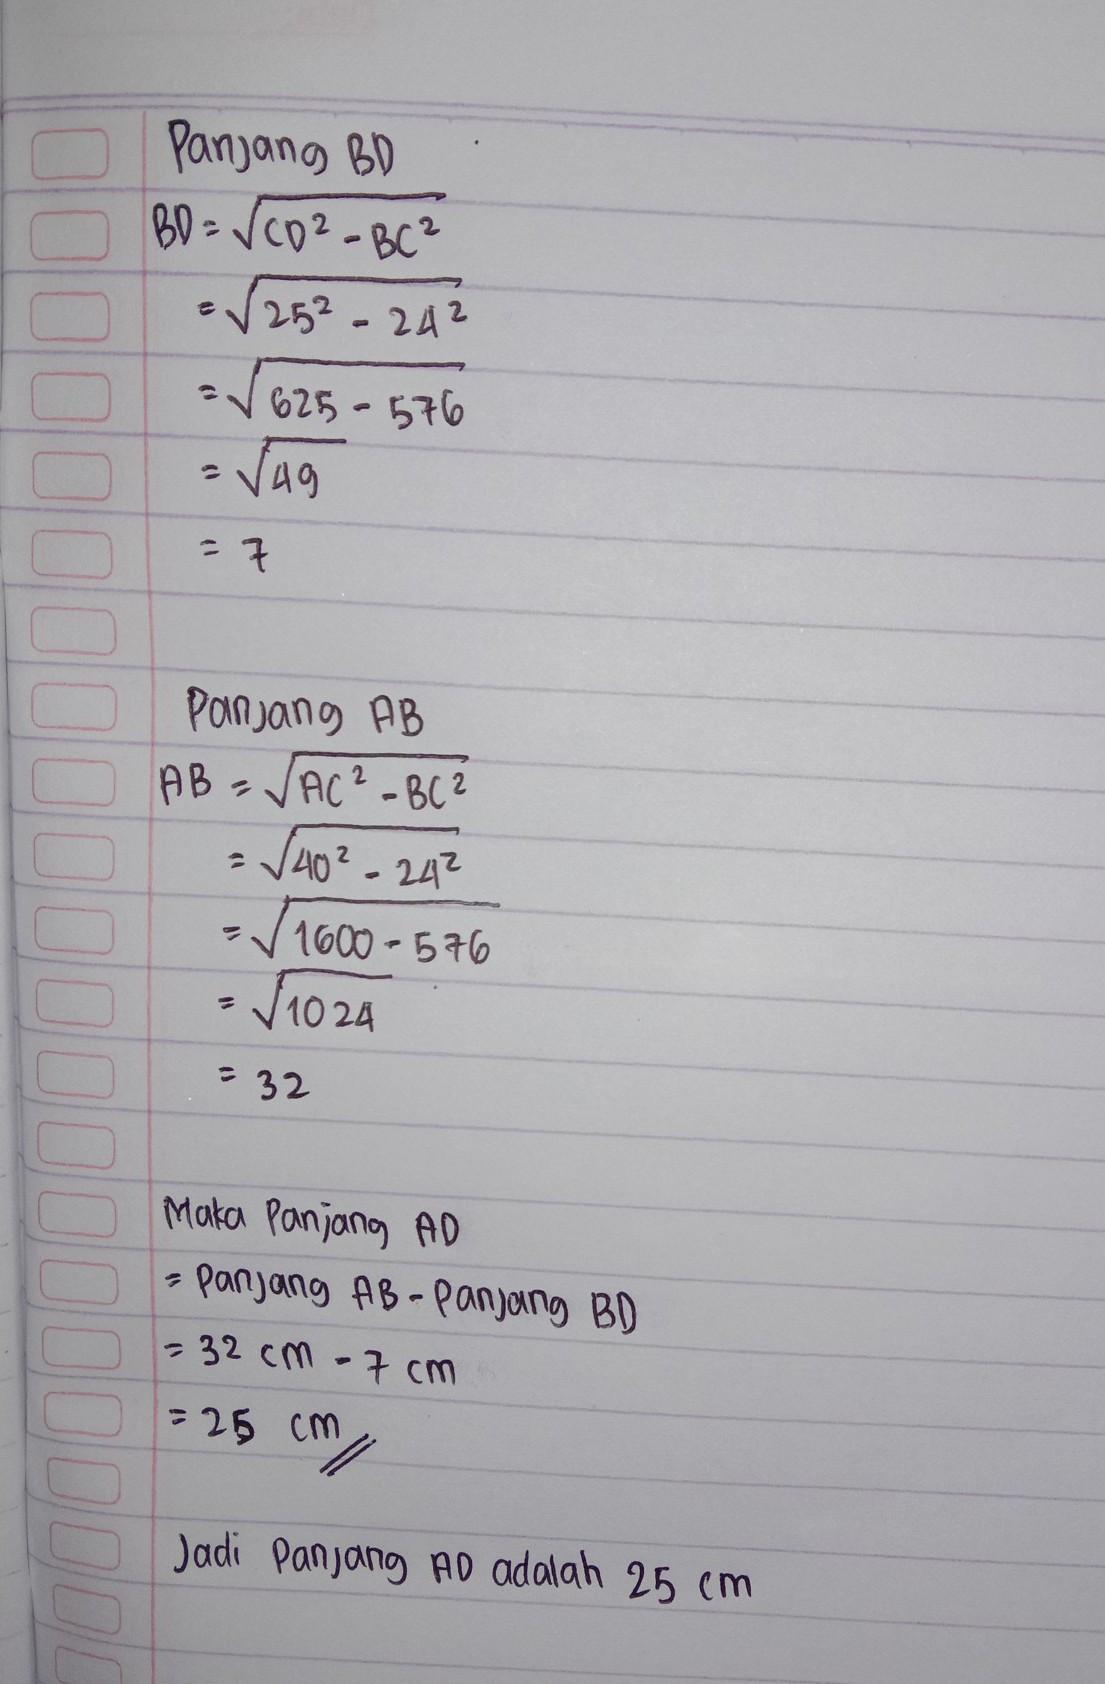 Panjang BD
BD = √CD² - BC²
= √25² - 24²
= √625 - 576
= √49
= 7
Panjang AB
AB = √AC² - BC²
= √40² - 24²
= √1600 - 576
= √1024
= 32
Maka Panjang AD
= Panjang AB - Panjang BD
= 32 cm - 7 cm
= 25 cm //
Jadi Panjang AD adalah 25 cm